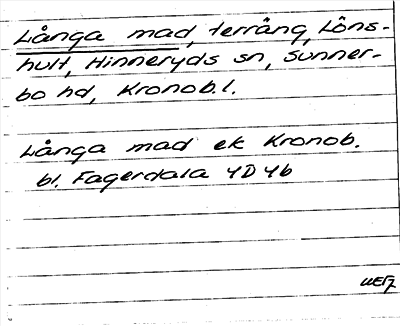 Långa mad, terräng, Löns-
hult, Hinneryds sn, Sunner-
bo hd, Kronob.l.
Långa mad ek Kronob.
bl. Fagerdala 4D4b